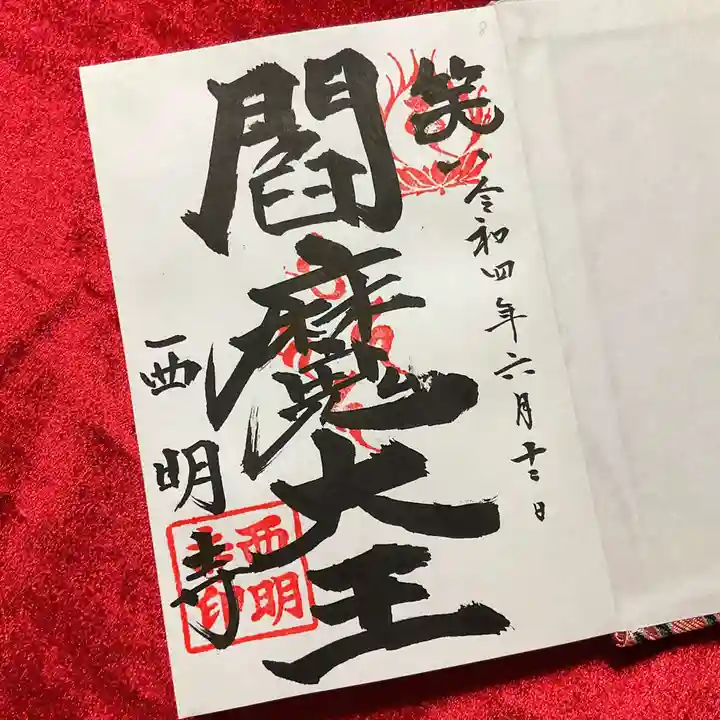 笑い
令和四年六月十二日
閻魔大王
西明寺
西明
寺印